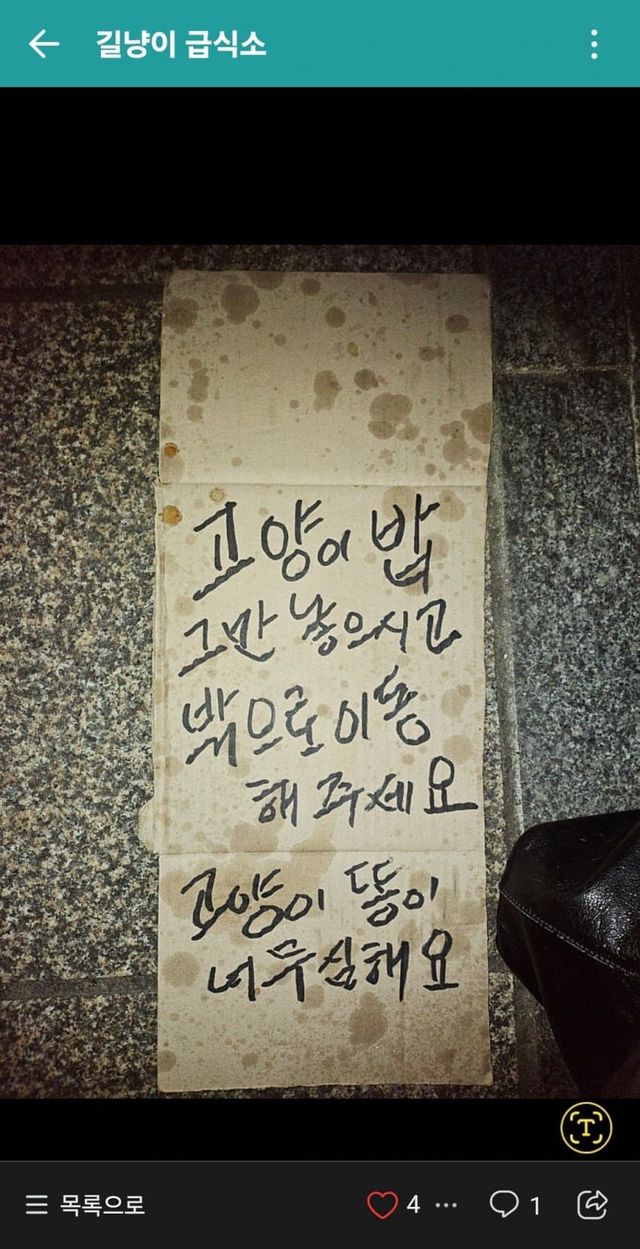 길냥이 급식소
고양이 밥
그만 놓으시고
밖으로 이동
해 주세요
고양이 똥이
너무 심해요
T
목록으로
4
1